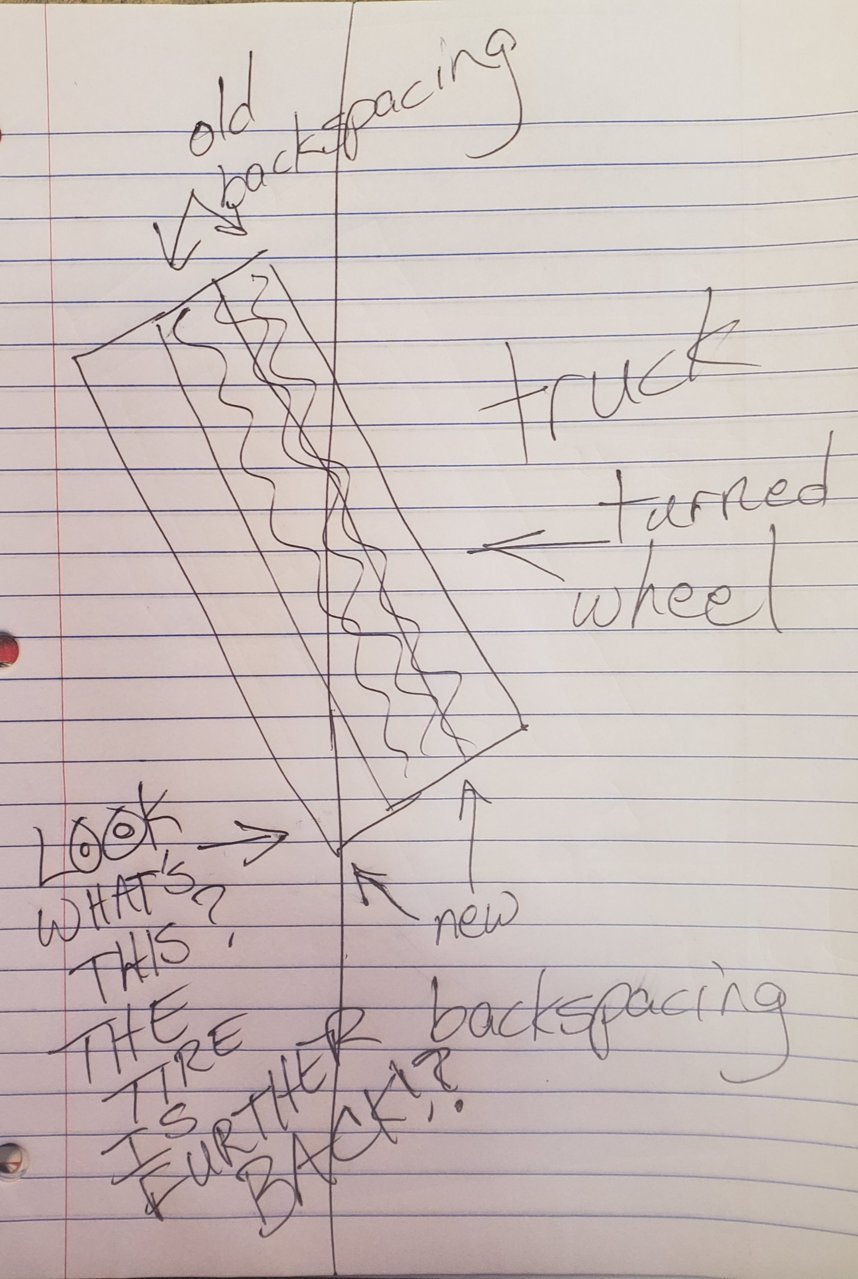 old
backspacing
truck
turned
wheel
LOOK
WHAT'S
THIS?
THE
TIRE
IS
FURTHER
BACK!?
new
backspacing